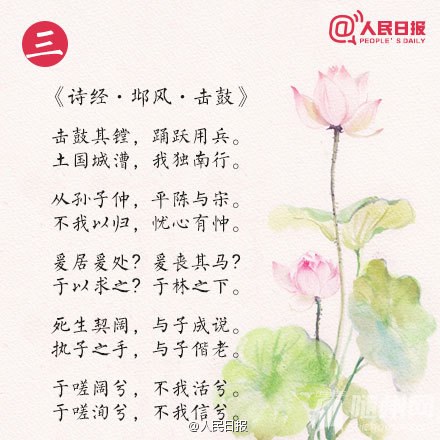 三
@人民日报
PEOPLE'S DAILY
《诗经·邶风·击鼓》
击鼓其镗，踊跃用兵。
土国城漕，我独南行。
从孙子仲，平陈与宋。
不我以归，忧心有忡。
爰居爰处？爰丧其马？
于以求之？于林之下。
死生契阔，与子成说。
执子之手，与子偕老。
于嗟阔兮，不我活兮。
于嗟洵兮，不我信兮。
@人民日报